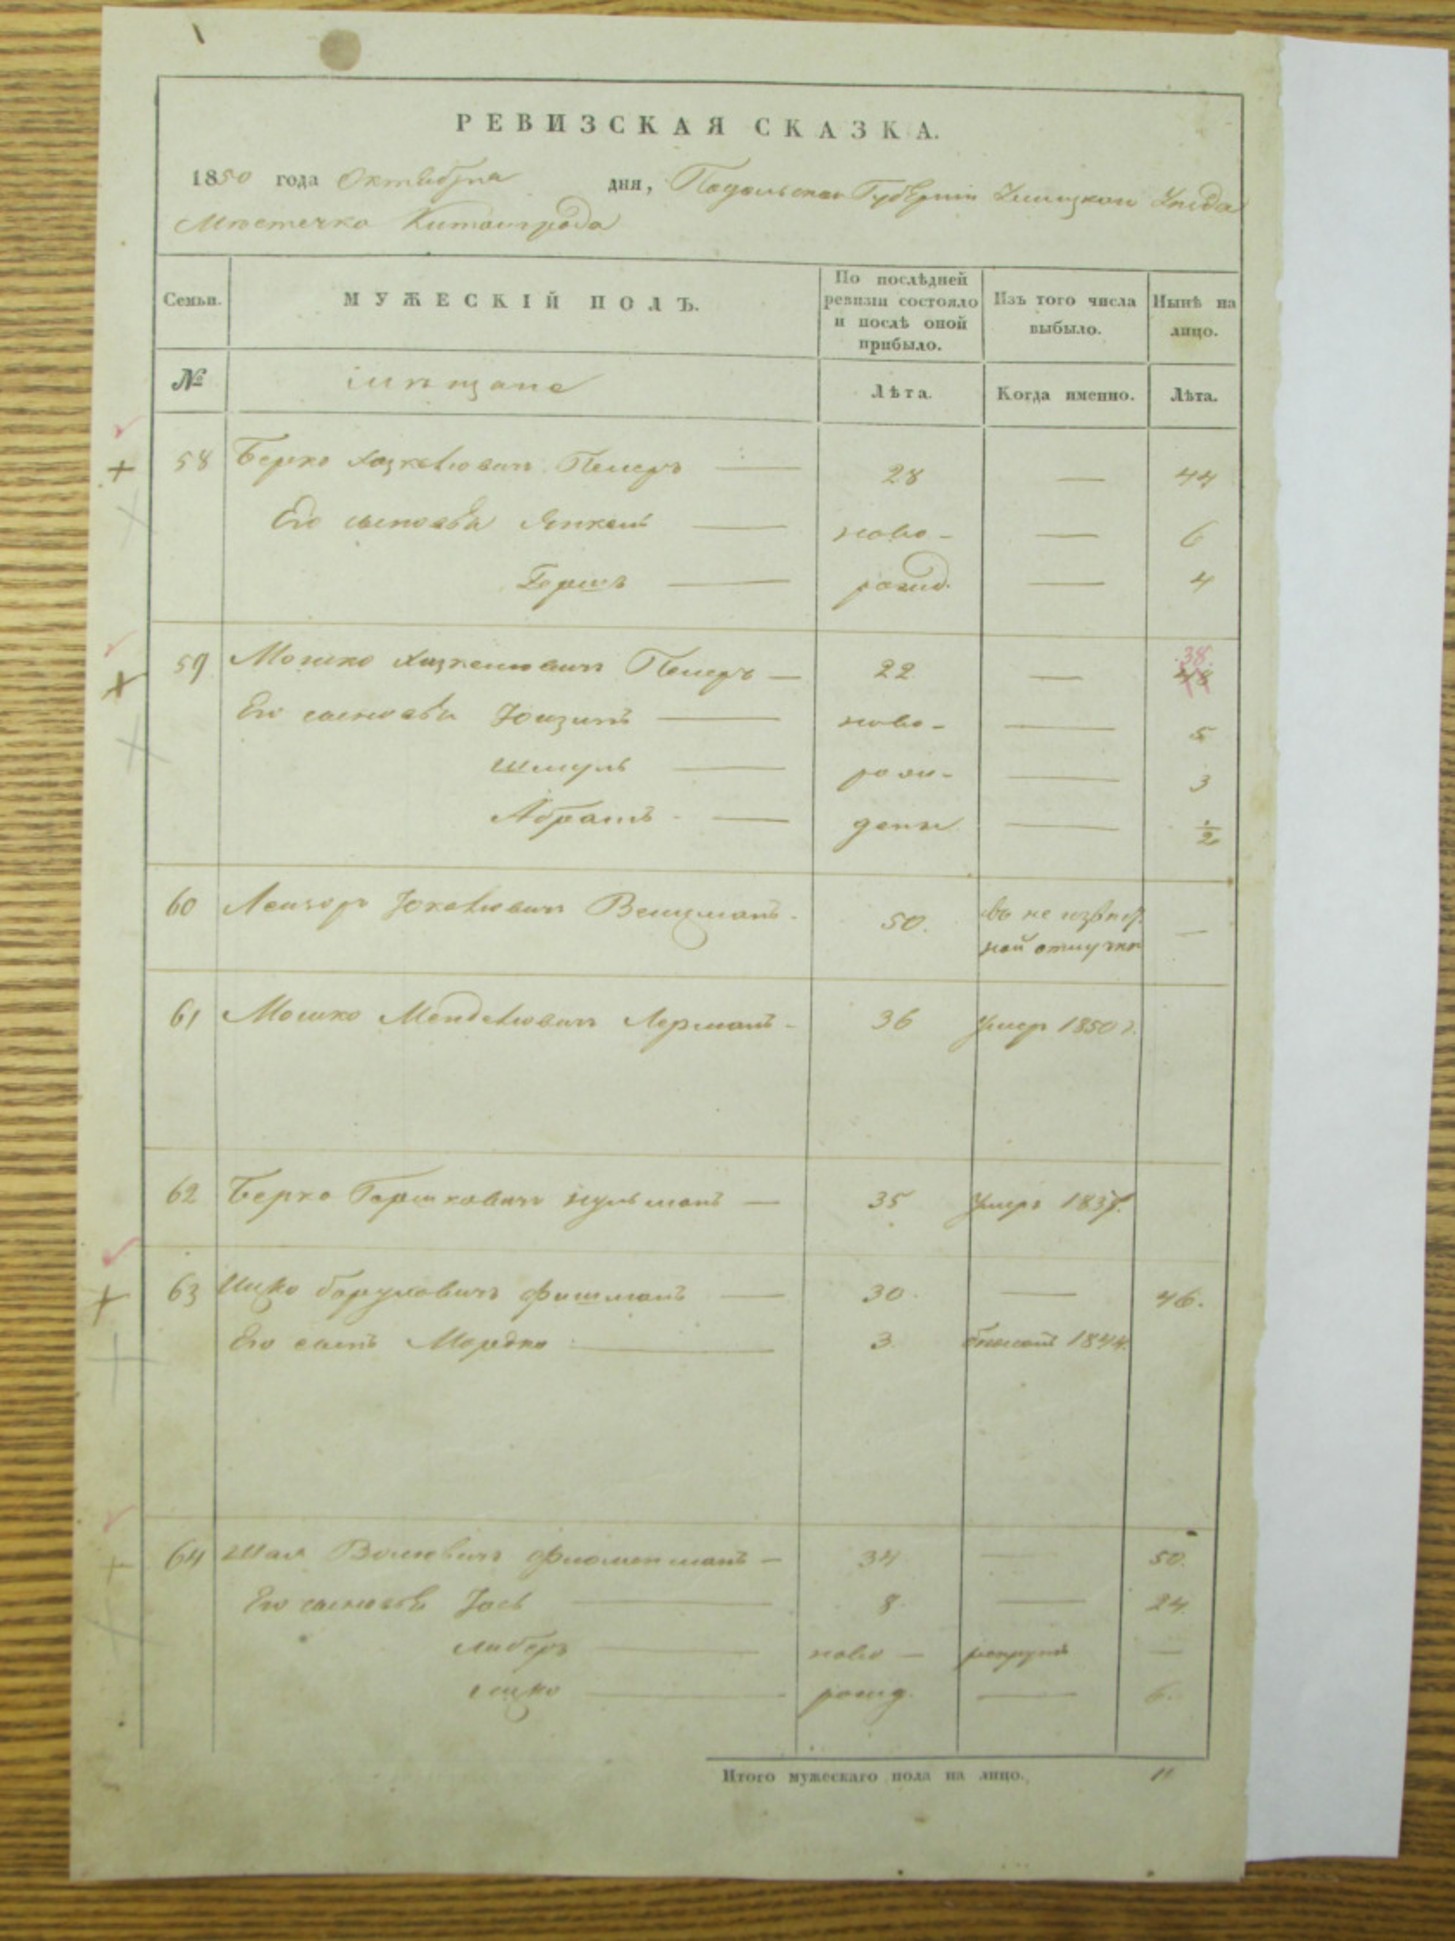 РЕВИЗСКАЯ СКАЗКА.
1850 года Октября дня, Подольской Губернии Ушицкого Уезда
Местечка Китайгрода
Семьи. МУЖЕСКІЙ ПОЛЪ. По послѣдней ревизіи состояло и послѣ оной прибыло. Изъ того числа выбыло. Нынѣ на лицо.
№ мещане Лѣта. Когда именно. Лѣта.
58 Берко Хаскелевичъ 28 — 44
Его сыновья Янкель ново- — 6
Гершъ рожд. — 4
59 Мошко 22 — 38 48
Его сыновья ново- — 5
Шмуль рож- — 3
Абрамъ дены — 1/2
60 Лейзоръ 50. въ не извѣст ной отлучке —
61 Мошко Менделювичъ Лерманъ 36 Умеръ 1850 г.
62 Берко Гершковичъ 35 Умеръ
63 Ицко Борухович Фишманъ — 30. — 46.
Его сынъ Мордко 3. 1844.
64 34 — 50.
Его сыновья Іось 8. — 24.
Либеръ ново — рекрутъ —
Ицко рожд. — 6.
Итого мужескаго пола на лицо. 11